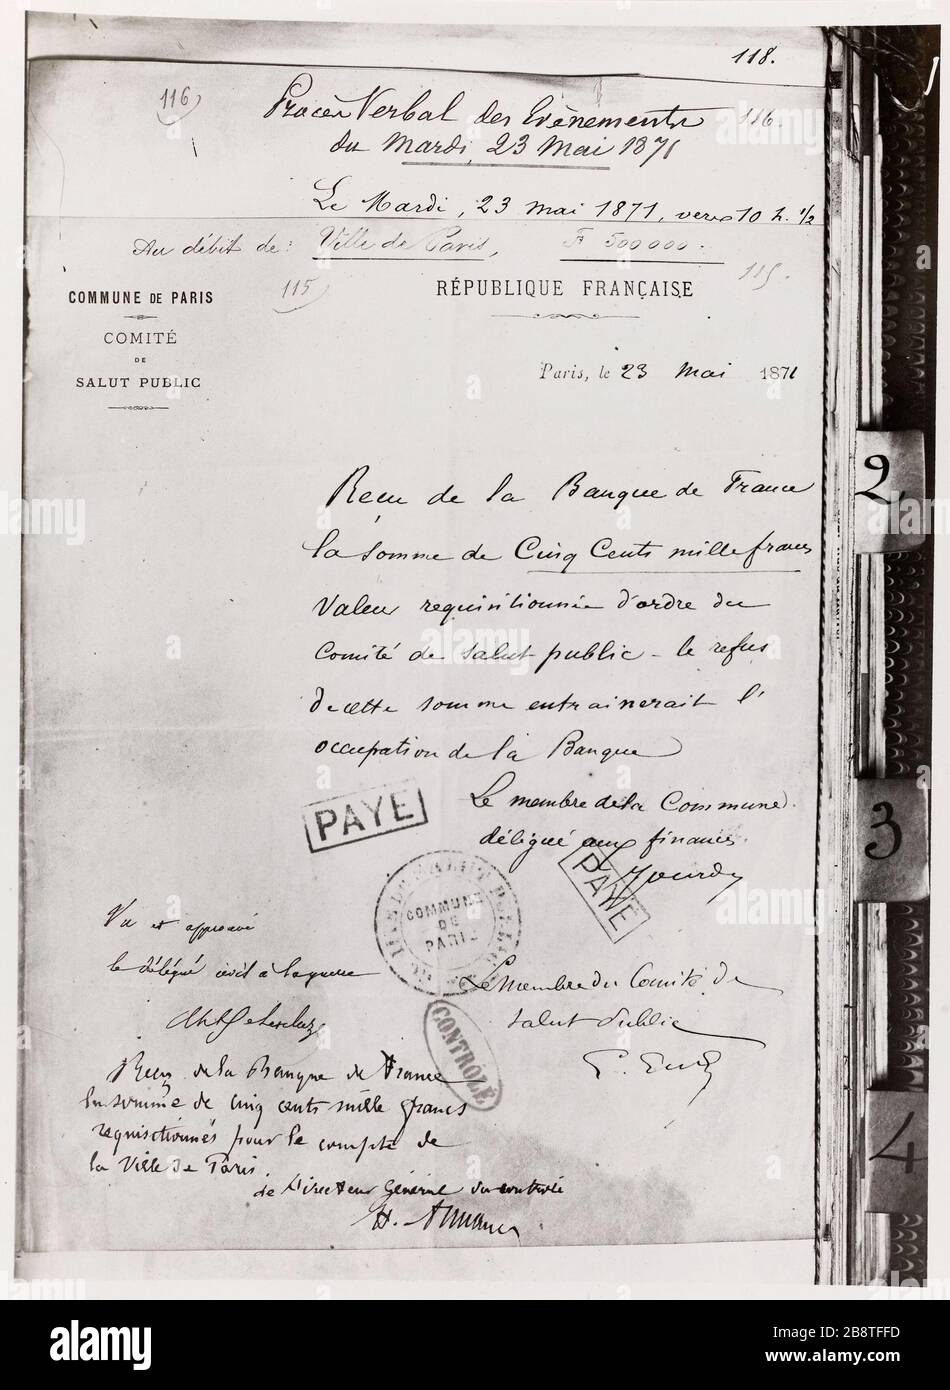 118.
116
Procès Verbal des Evènements 116.
du Mardi, 23 Mai 1871
Le Mardi, 23 mai 1871, vers 10 h. 1/2
Au débit de: Ville de Paris, F 500 000.
115 115.
COMMUNE DE PARIS
COMITÉ
DE
SALUT PUBLIC
RÉPUBLIQUE FRANÇAISE
Paris, le 23 Mai 1871
Reçu de la Banque de France
la somme de Cinq Cents mille francs
Valeur requisitionnée d'ordre du
Comité de salut public - le refus
de cette somme entrainerait l'
occupation de la Banque
Le membre de la Commune
délégué aux finances.
Jourde
PAYE
PAYE
COMMUNE
DE
PARIS
CONTRÔLÉ
Vu et approuvé
le délégué civil à la guerre
Ch Delescluze
Le membre du Comité de
Salut Public
E. Eudes
Reçu de la Banque de France
la somme de cinq cents mille francs
requisitionnés pour le compte de
la Ville de Paris.
Le Directeur Général du contrôle
H.
2
3
4
alamy
a
alamy
Image ID: 2B8TFFD
www.alamy.com